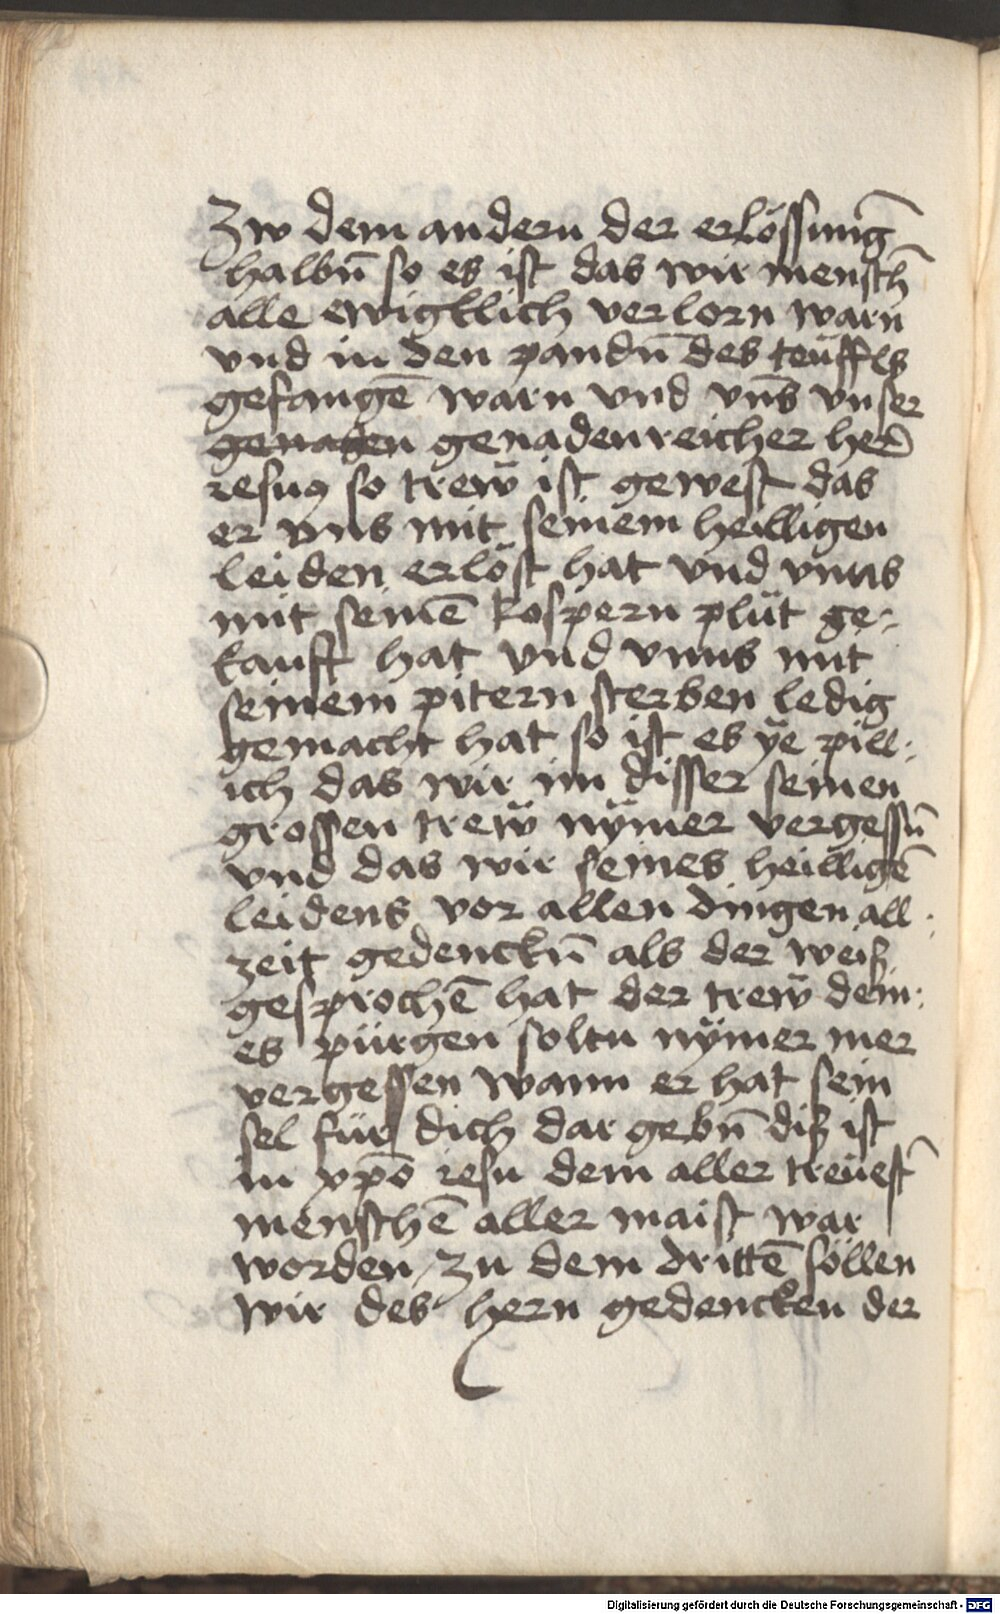 Zw dem andern der erlössunḡ
halbn̄ so es ist das wir mensch̄
alle ewigklich verlorn warn
vnd in den pandn̄ des teüffls
gefangē warn vnd vn̄s vnser
genaden genadenreicher her
iesus so treẅ ist gewest das
er vns mit seinem heilligen
leiden erlöst hat vnd vnns
mit seinē kospern plüt ge-
kaufft hat vnd vnns mit
seinem pitern sterben ledig
gemacht hat so ist es ÿe pill-
ich das wir im disser seinen
grossen treẅ nÿmer vergessn̄
vnd das wir seines heilligē
leidens vor allen dingen all-
zeit gedenckn̄ als der weiß
gesprochē hat der treẅ dein-
es pürgen soltu nÿmer mer
vergessen wann er hat sein
sel für dich dar gebn̄ diß ist
in xp̄o iesu dem aller treüest̄
menschē aller maist war
worden / zu dem drittē söllen
wir des hern gedencken der
Digitalisierung gefördert durch die Deutsche Forschungsgemeinschaft - DFG